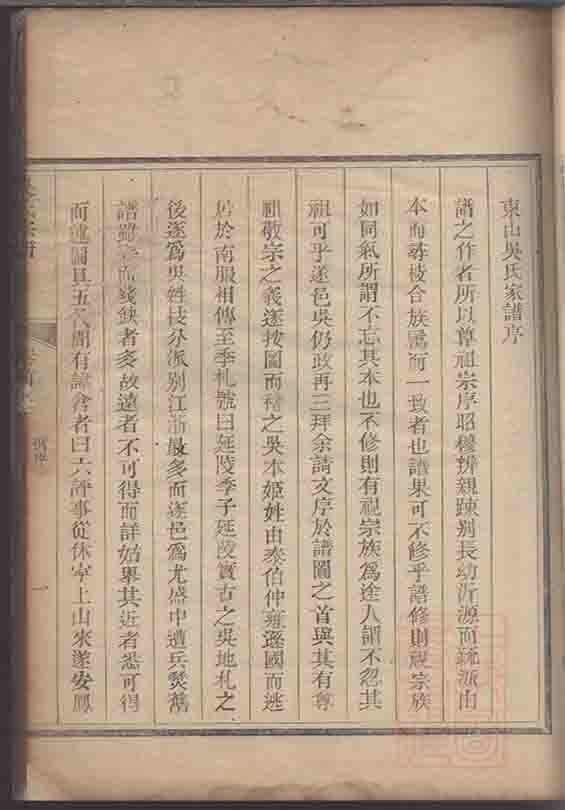 東山吳氏家譜序
譜之作者所以尊祖宗序昭穆辨親踈别長幼沂源而疏派由
本而尋枝合族属而一致者也譜果可不修乎譜修則視宗族
如同氣所謂不忘其本也不修則有視宗族爲途人謂不忍其
祖可乎遂邑吳仍政再三拜余請文序於譜圖之首與其有尊
祖敬宗之義遂按圖而稽之吳本姬姓由泰伯仲雍遜國而逃
居於南服相傳至季札號曰延陵季子延陵實古之吳地札之
後遂爲吳姓枝分派別江浙最多而遂邑爲尤盛中遭兵燹舊
譜雖存而殘缺者多故遠者不可得而詳始舉其近者悉可得
而述圖具五人間有諱含者曰六評事從休寧上山來遂安鳳
舊序
一